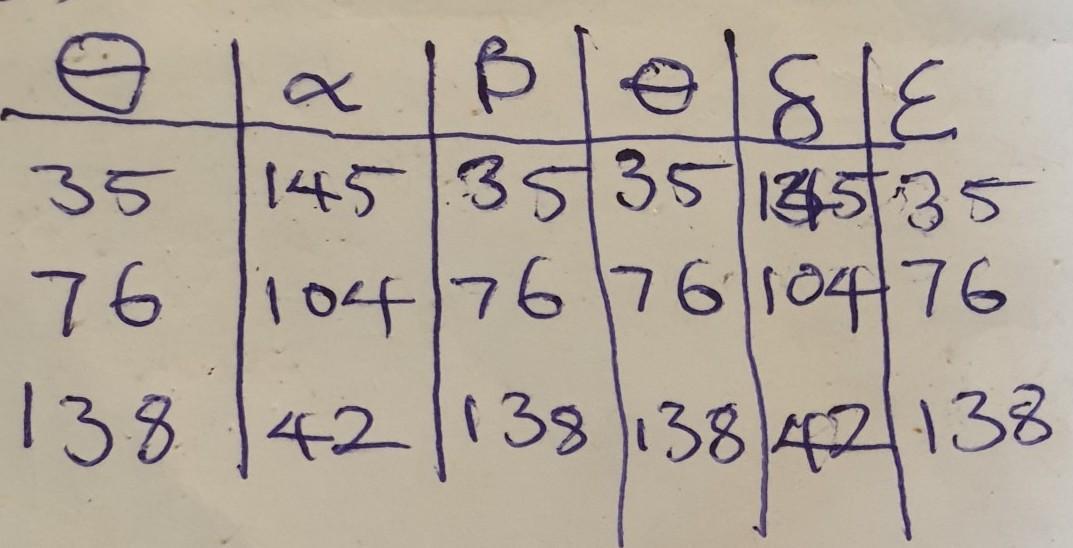 θ α β θ δ ε
35 145 35 35 145 35
76 104 76 76 104 76
138 42 138 138 42 138